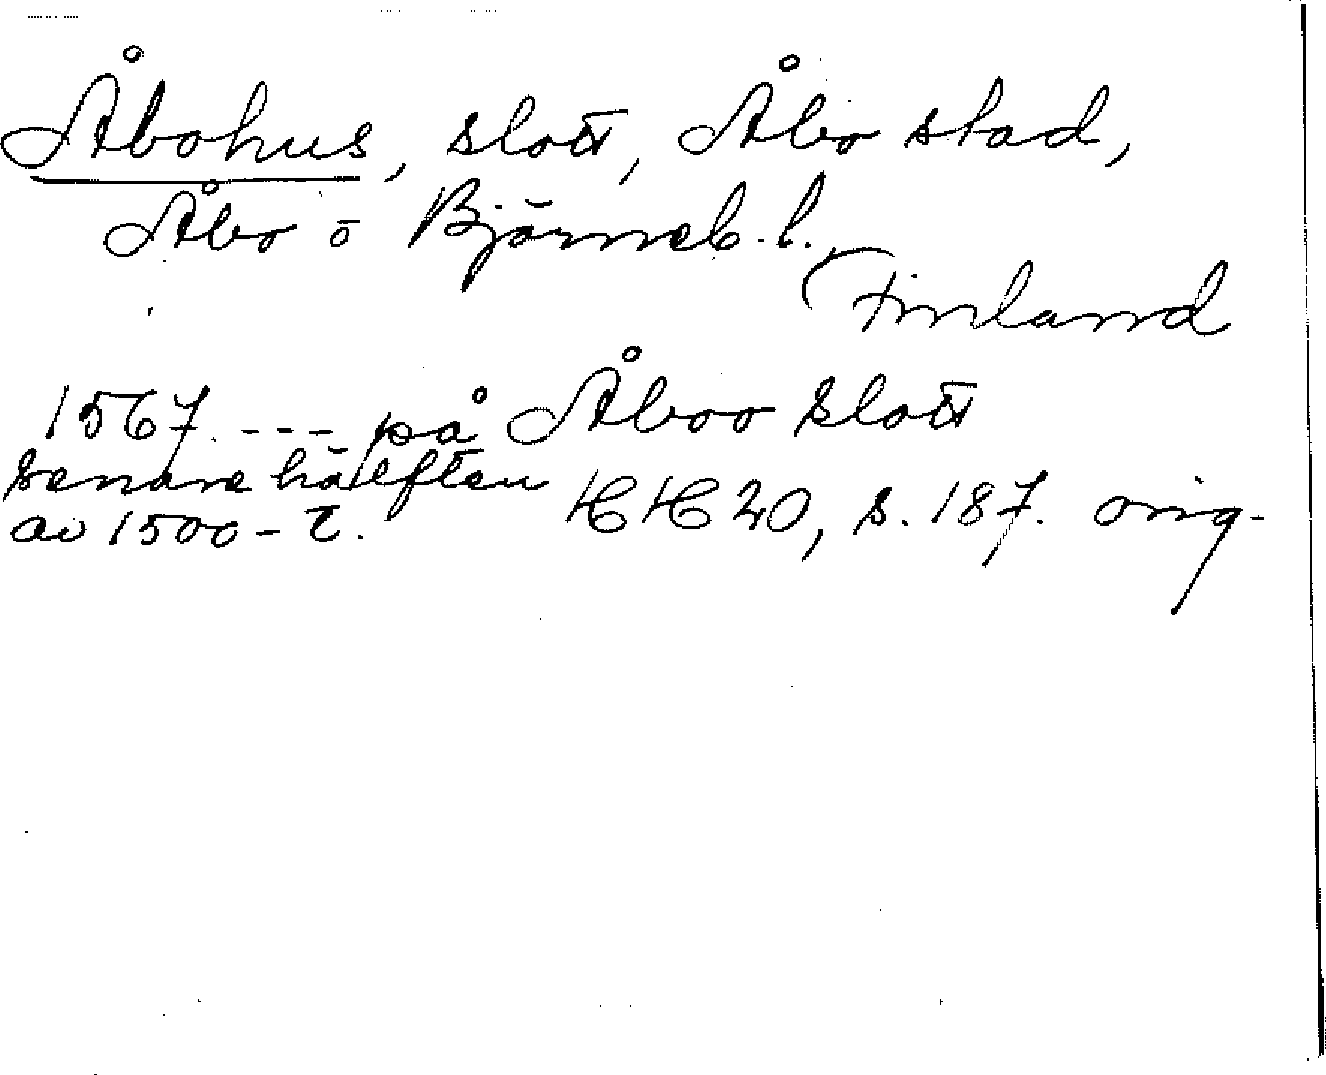 Åbohus, slott, Åbo stad,
Åbo o Björneb. l.
Finland
1567. --- på Åboo slott
senare hälften
av 1500-t. HH 20, s. 187. orig.